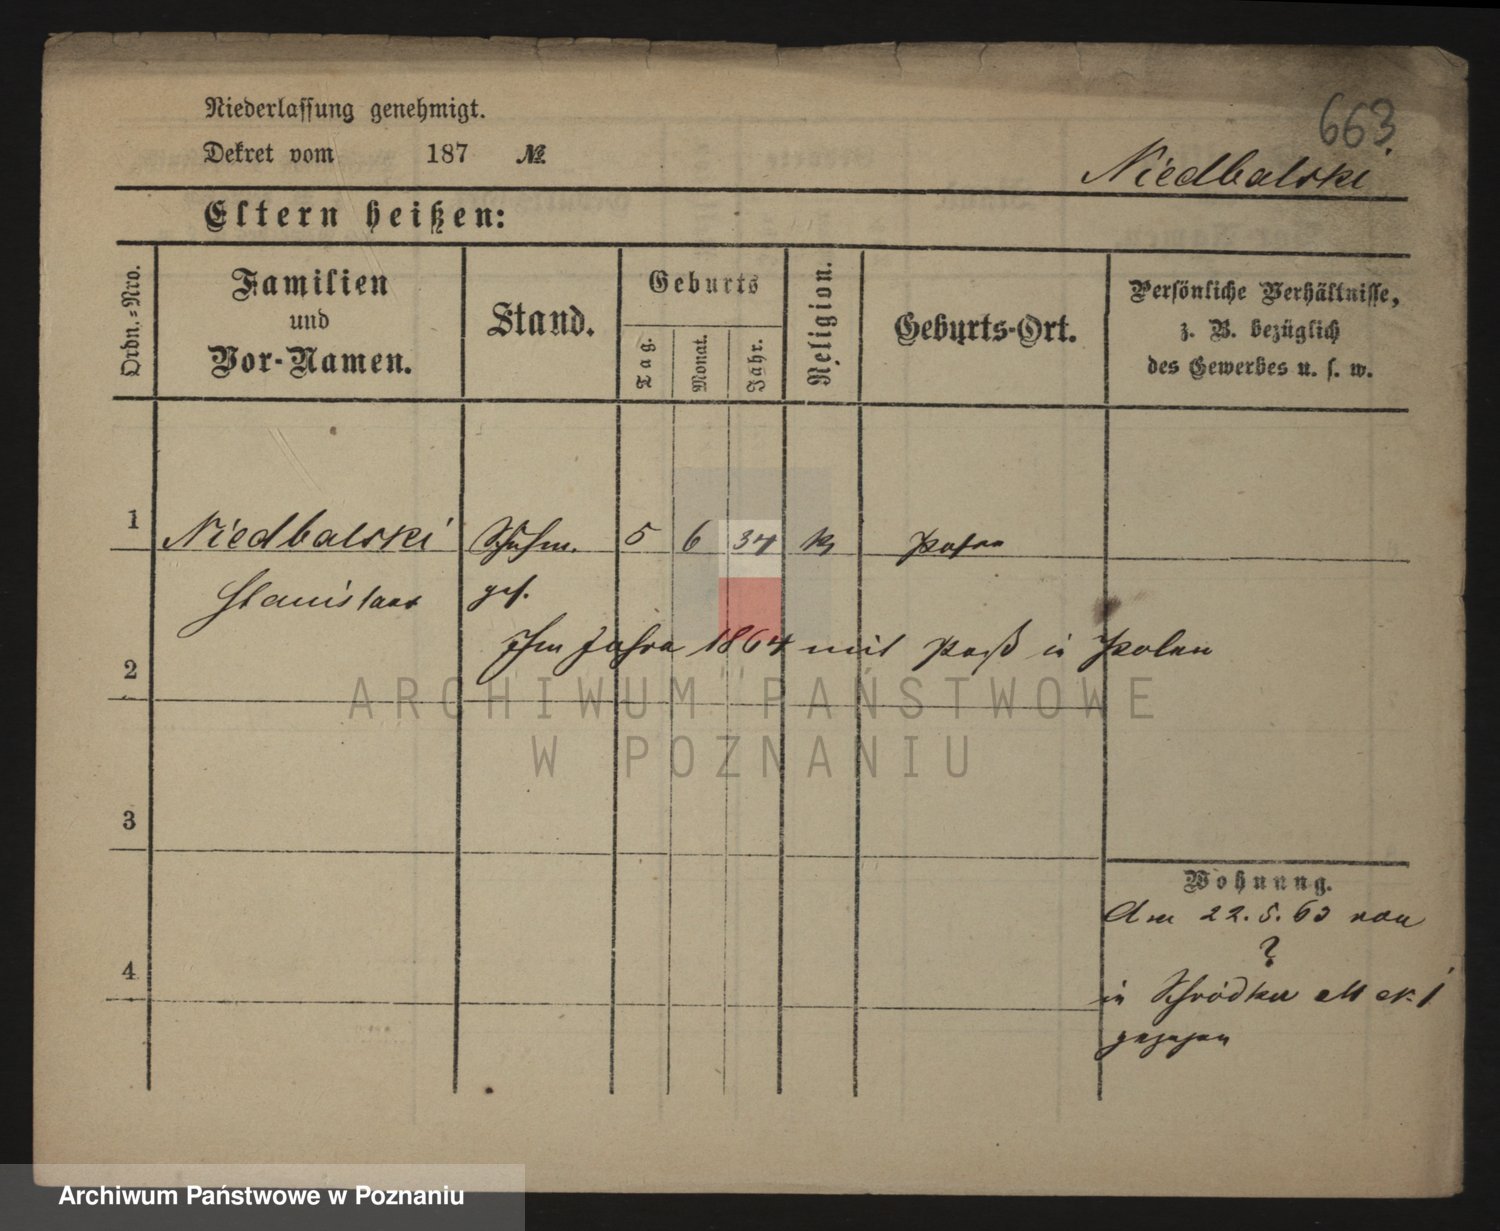 663
Niederlassung genehmigt.
Dekret vom 187 №
Niedbalski
Eltern heißen:
Ordn.-Nro.
Familien
und
Vor-Namen.
Stand.
Geburts
Tag.
Monat.
Jahr.
Religion.
Geburts-Ort.
Persönliche Verhältnisse,
z. B. bezüglich
des Gewerbes u. s. w.
1 Niedbalski Schuhm. 5 6 34 k Posen
Stanislaus ges.
2 Im Jahre 1864 mit Paß in Polen
ARCHIWUM PAŃSTWOWE
W POZNANIU
3
Wohnung.
Am 22. 5. 63 von
?
4 in Schrodka
gezogen
Archiwum Państwowe w Poznaniu